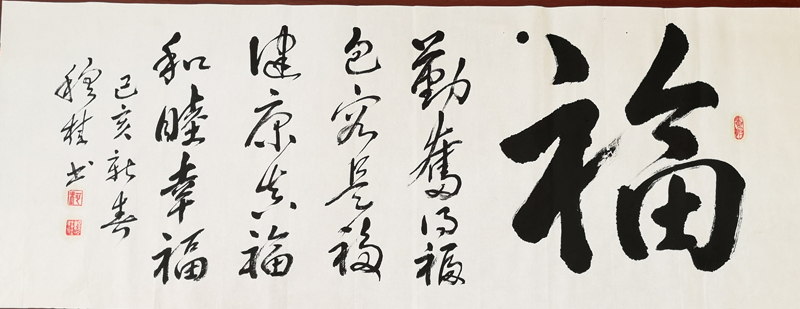 福
勤奮得福
包容是福
健康真福
和睦幸福
己亥新春
穆桂书